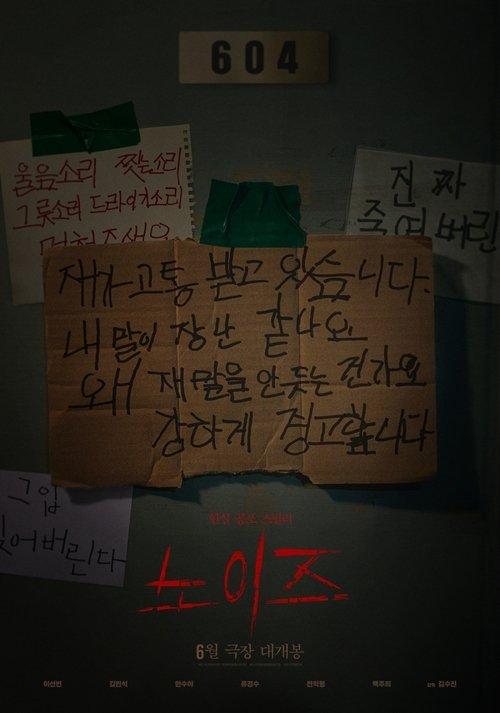 604
울음소리 찢는소리
그릇소리 드라이기소리
멈춰주세요
진짜
죽여버린
제가 고통 받고 있습니다.
내 말이 장난 같나요
왜 제말을 안듣는 건가요
강하게 경고합니다
그입
찢어버린다
현실 공포 스릴러
노이즈
6월 극장 대개봉
이선빈 김민석 한수아 류경수 전익령 백주희 감독 김수진